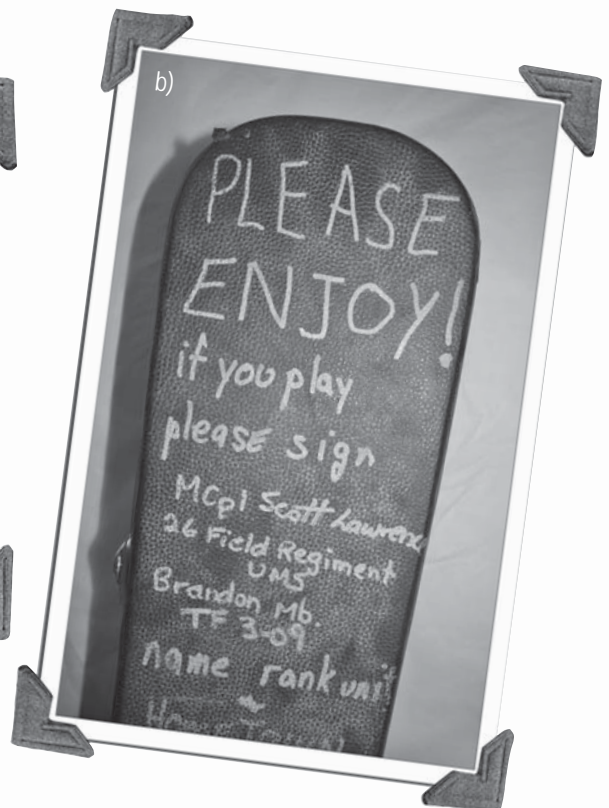 b)
PLEASE
ENJOY!
if you play
please sign
MCpl Scott Lawrence
26 Field Regiment
UMS
Brandon Mb.
TF 3-09
name rank unit
Home Town